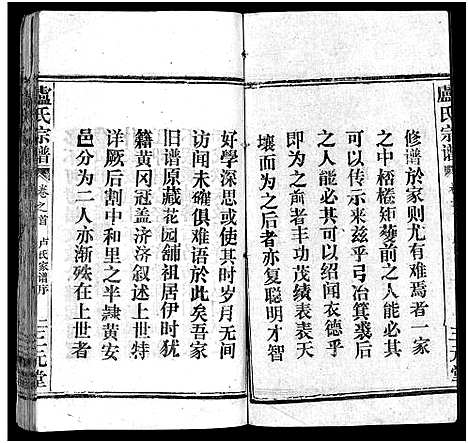 盧氏宗譜
修谱於家则尤有难焉者一家
之中桮棬矩蒦前之人能必其
可以传示来兹乎弓冶箕裘后
之人能必其可以绍闻衣德乎
即为之前者丰功茂绩表表天
壤而为之后者亦复聪明才
三元堂
好学深思或使其时岁月无间
访闻未确俱难语於此矣吾家
旧谱原藏花园舖祖居伊时犹
籍黄冈冠盖济济叙述上世特
详厥后割中和里之半隶黄安
邑分为二人亦渐殊在上世者
盧氏宗譜
卷之首
卢氏家谱序
二
三元堂